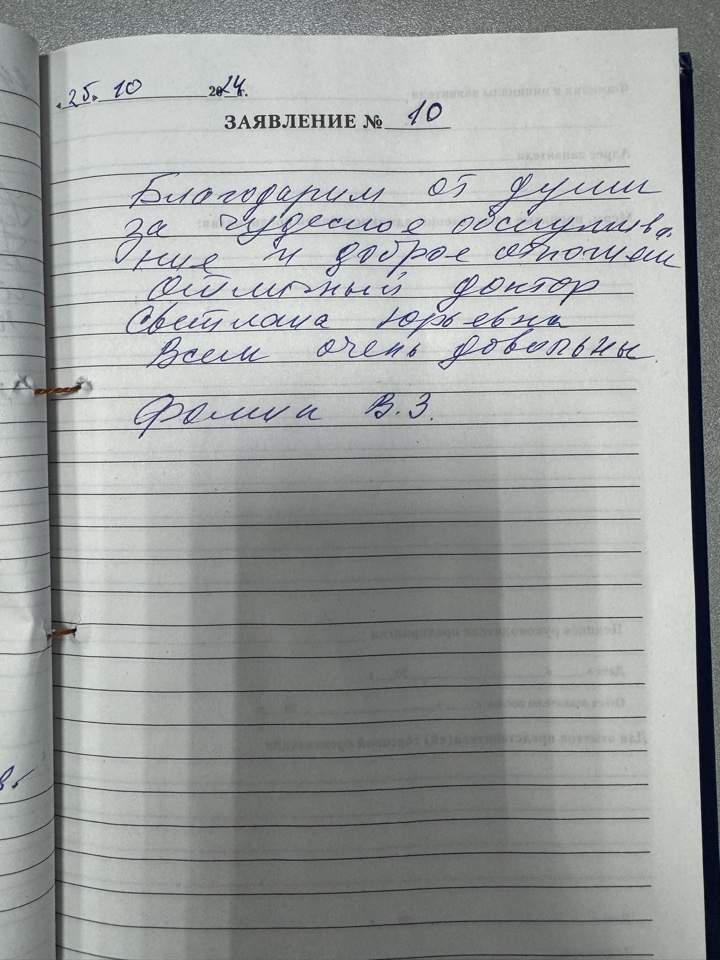 25. 10 2024г.
ЗАЯВЛЕНИЕ № 10
Благодарим от души
за чудесное обслужива
ние и доброе отношен
Отличный доктор
Светлана Юрьевна
Всем очень довольны.
Фомин В.З.